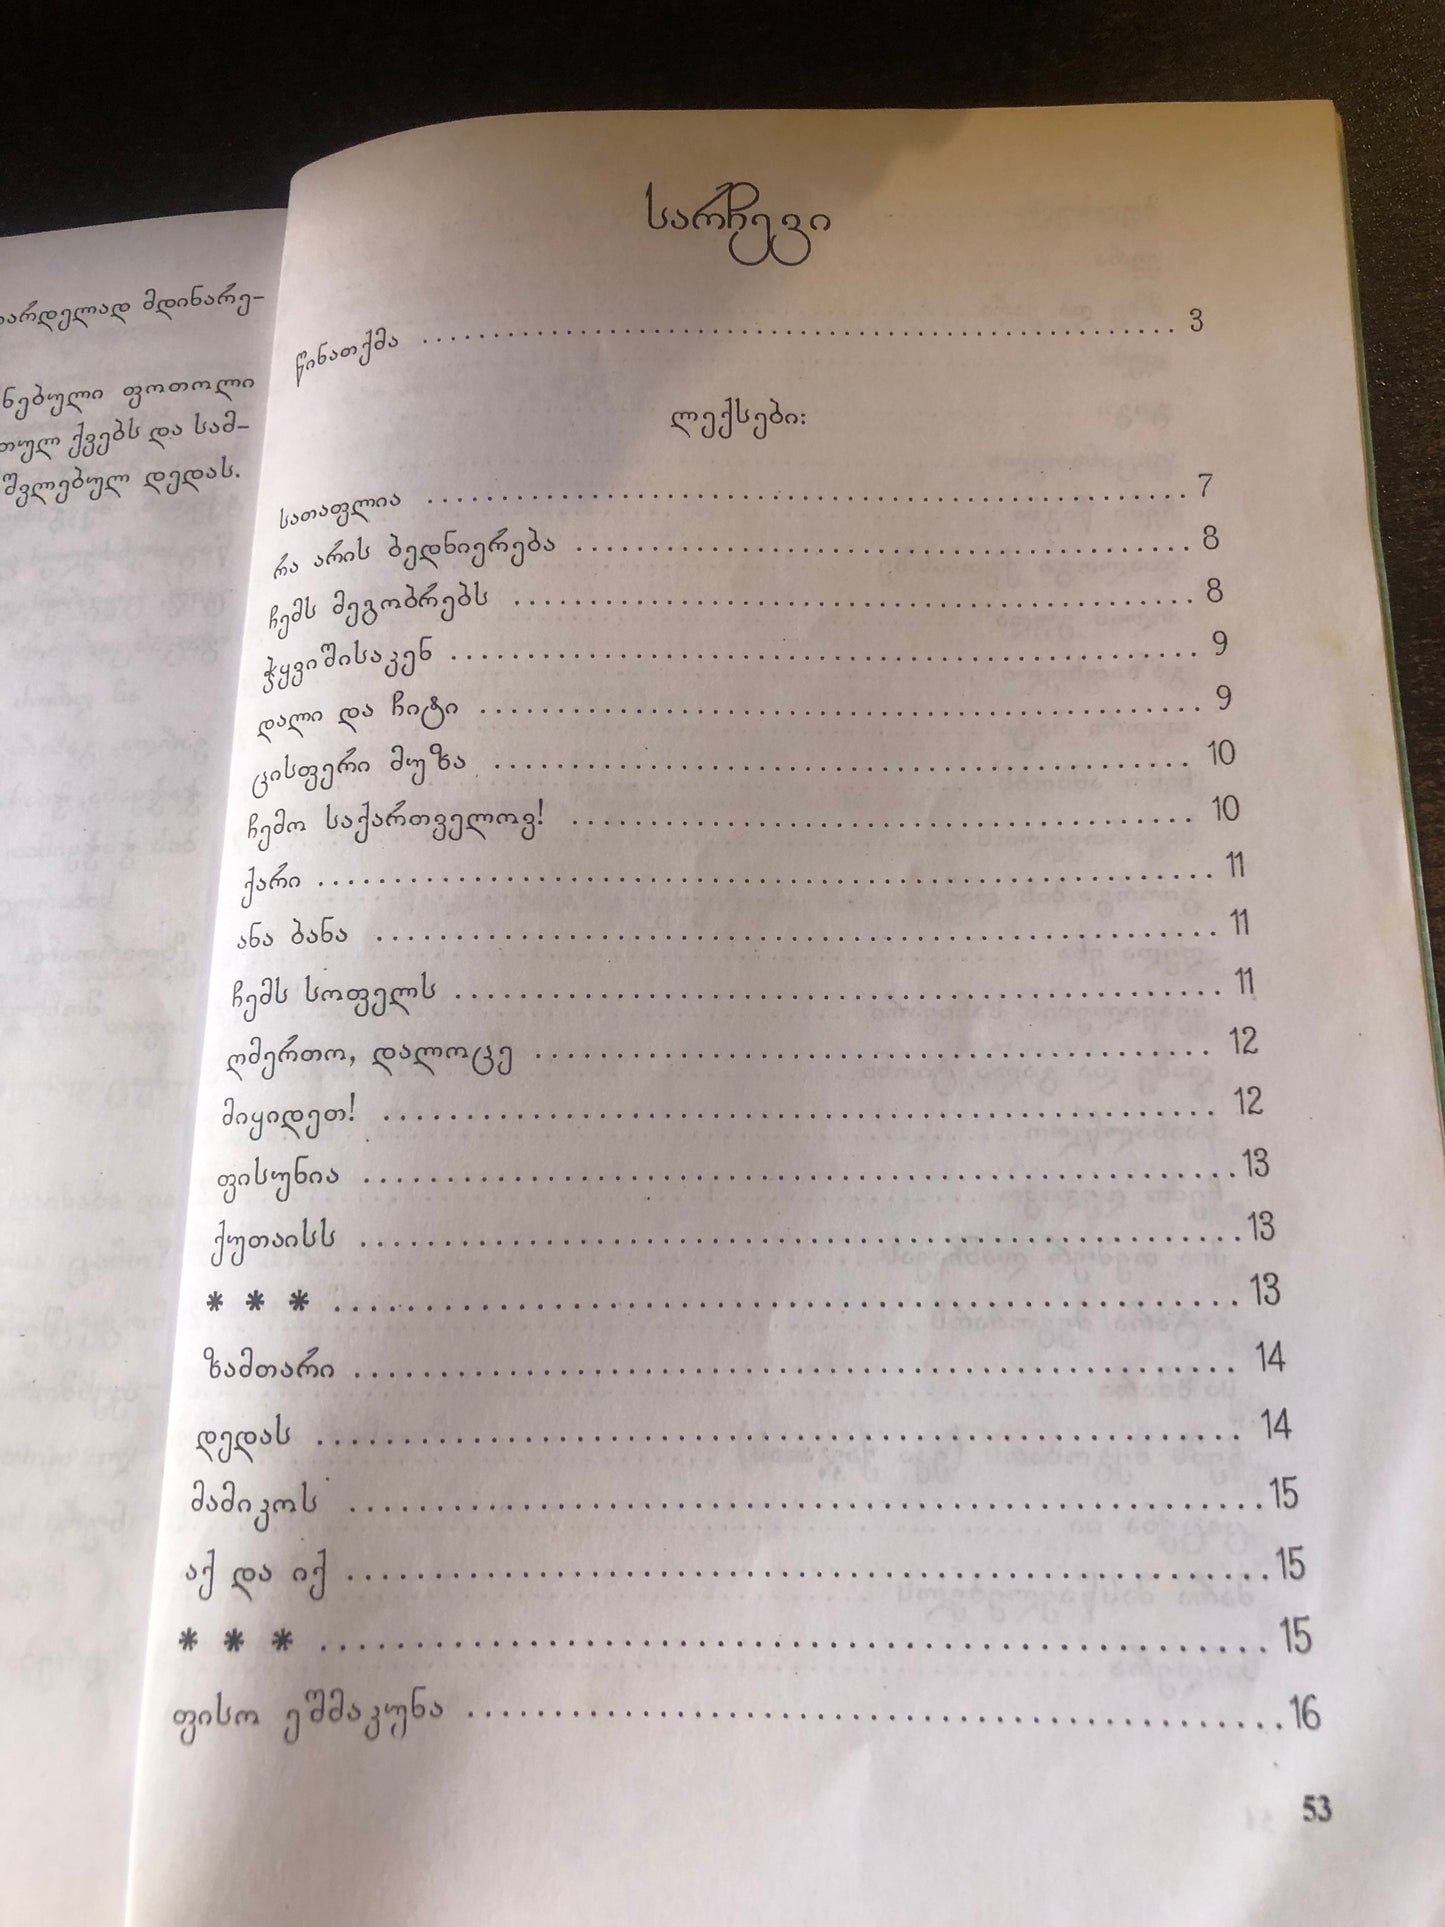 მდინარე-
ფოთოლი
ქვებს და სამ-
დედას.
სარჩევი
წინათქმა ........................................ 3
ლექსები:
სათაფლია ........................................ 7
რა არის ბედნიერება ........................................ 8
ჩემს მეგობრებს ........................................ 8
ჭყვიშისაკენ ........................................ 9
დალი და ჩიტი ........................................ 9
ცისფერი მუზა ........................................ 10
ჩემო საქართველოვ! ........................................ 10
ქარი ........................................ 11
ანა ბანა ........................................ 11
ჩემს სოფელს ........................................ 11
ღმერთო, დალოცე ........................................ 12
მიყიდეთ! ........................................ 12
ფისუნია ........................................ 13
ქუთაისს ........................................ 13
* * * ........................................ 13
ზამთარი ........................................ 14
დედას ........................................ 14
მამიკოს ........................................ 15
აქ და იქ ........................................ 15
* * * ........................................ 15
ფისო ეშმაკუნა ........................................ 16
53